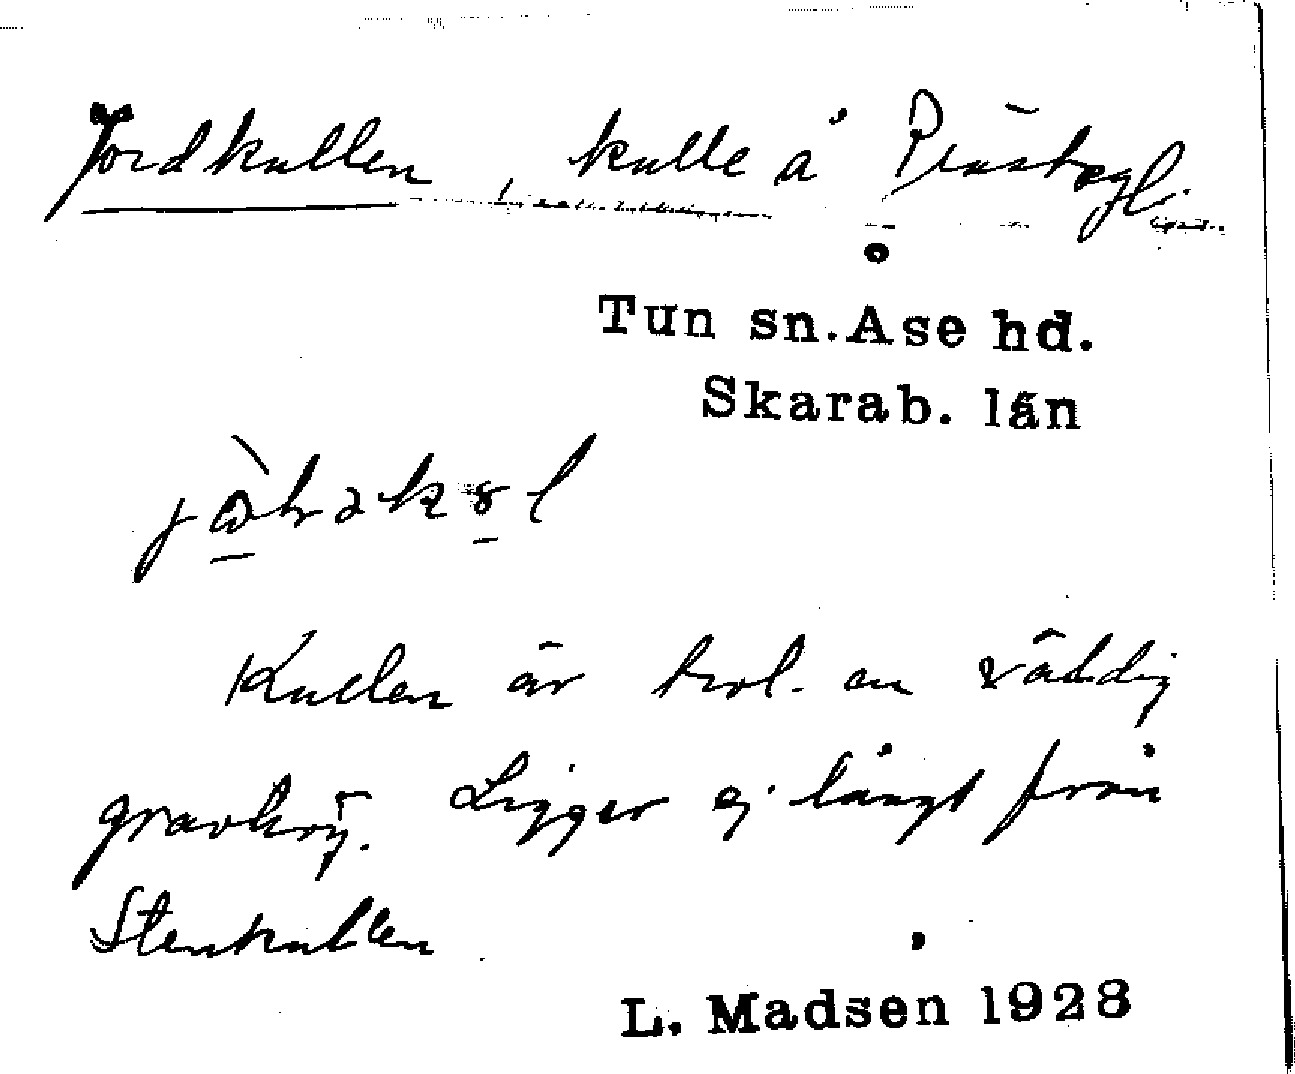 Jordkullen, kulle å Prästegl.
Tun sn. Åse hd.
Skarab. län
Kullen är trol. en väldig
gravhög. Ligger ej långt från
Stenkullen
L. Madsen 1928